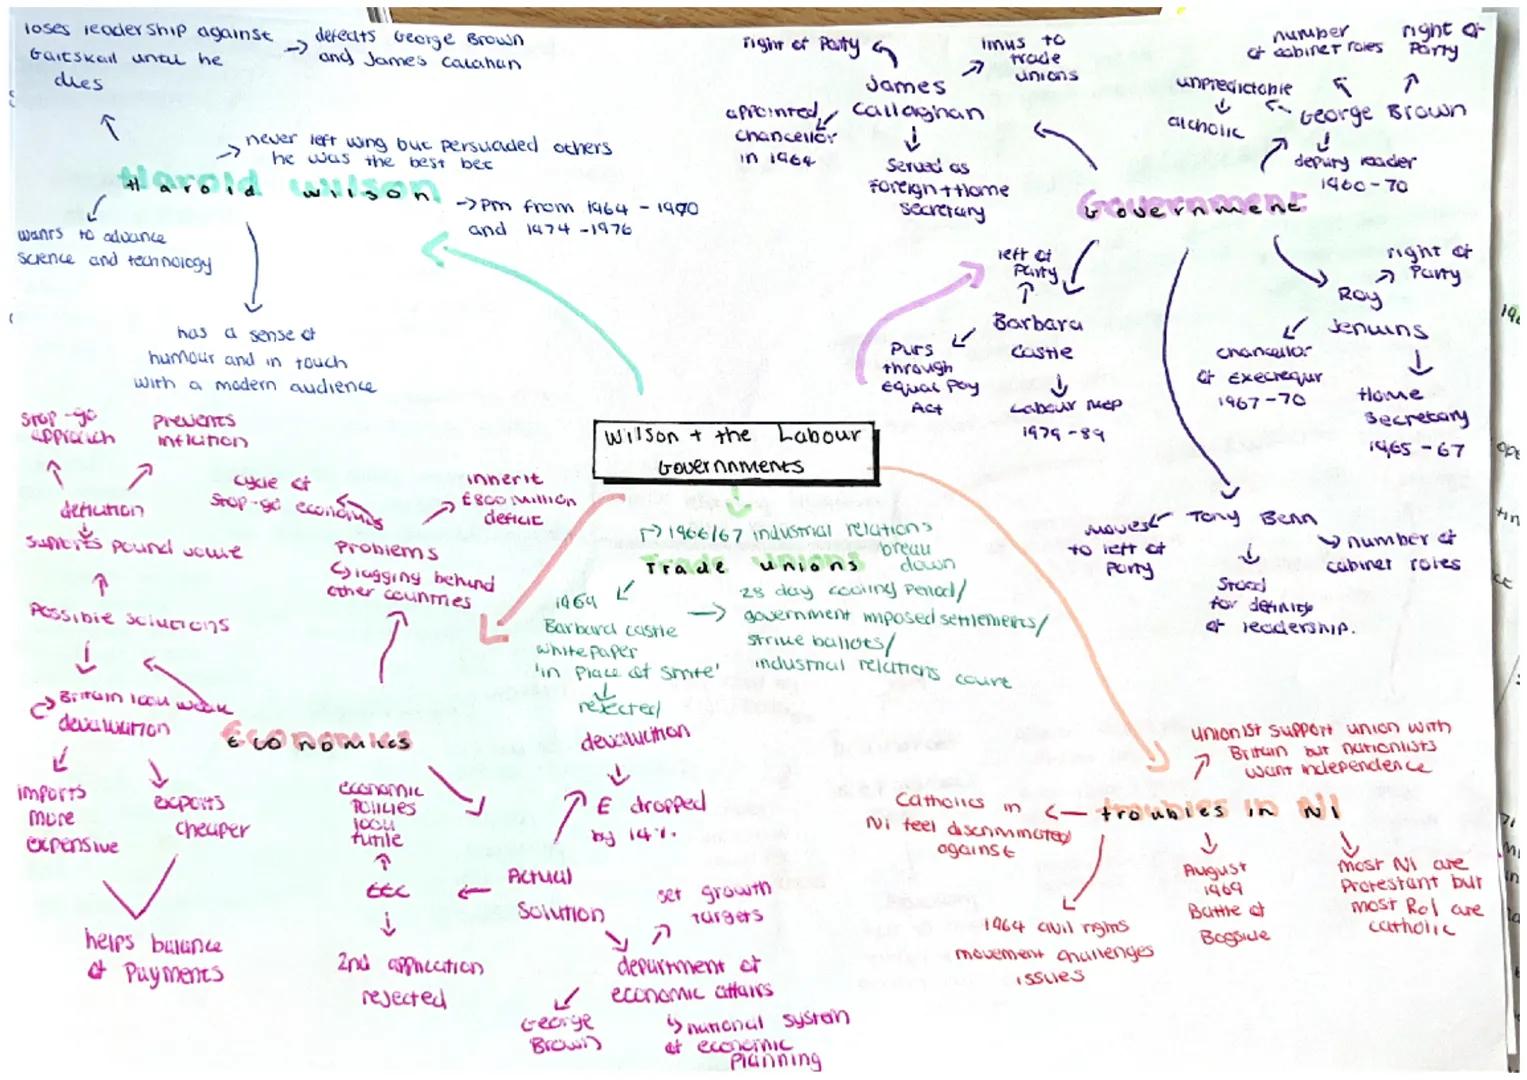 loses leadership against
Gaitskall until he
dies
defeats George Brown
and James Calahan
never left wing but persuaded others
he was the best bet
Harold Wilson
PM from 1964 - 1970
and 1974 - 1976
wants to advance
science and technology
has a sense of
humour and in touch
with a modern audience
right of Party
links to
trade
unions
James
Callaghan
appointed
chancellor
in 1964
Served as
Foreign + Home
Secretary
number
of cabinet roles
right of
Party
unpredictable
alcholic
George Brown
deputy leader
1960-70
Government
left of
Party
Barbara
Castle
Puts
through
Equal Pay
Act
Labour MEP
1979-89
right of
Party
Roy
Jenkins
chancellor
of Execrequr
1967-70
Home
Secretary
1965-67
Tony Benn
moves
to left of
Party
Stood
for definite
of leadership.
number of
cabinet roles
Wilson + the Labour
Governnments
Stop-go
approach
Prevents
inflation
deflation
supports pound value
Possible solutions
cycle of
Stop-go economics
inherit
£800 million
deficit
Problems
lagging behind
other countries
Britain look weak
devaluation
Economics
imports
more
expensive
exports
cheaper
helps balance
of Payments
economic
Policies
look
futile
EEC
2nd application
rejected
Actual
Solution
devaluation
£ dropped
by 14%.
set growth
targets
department of
economic affairs
George
Brown
national system
of economic
Planning
1966/67 industrial relations
break
down
Trade unions
1969
Barbara castle
whitepaper
'in Place of Strife'
rejected
28 day cooling Period/
government imposed settlements/
strike ballots/
industrial relations court
unionist support union with
Britain but nationlists
want independence
troubles in NI
Catholics in
NI feel discriminated
against
1964 civil rights
movement challenges
issues
August
1969
Battle of
Bogside
most NI are
Protestant but
most RoI are
catholic